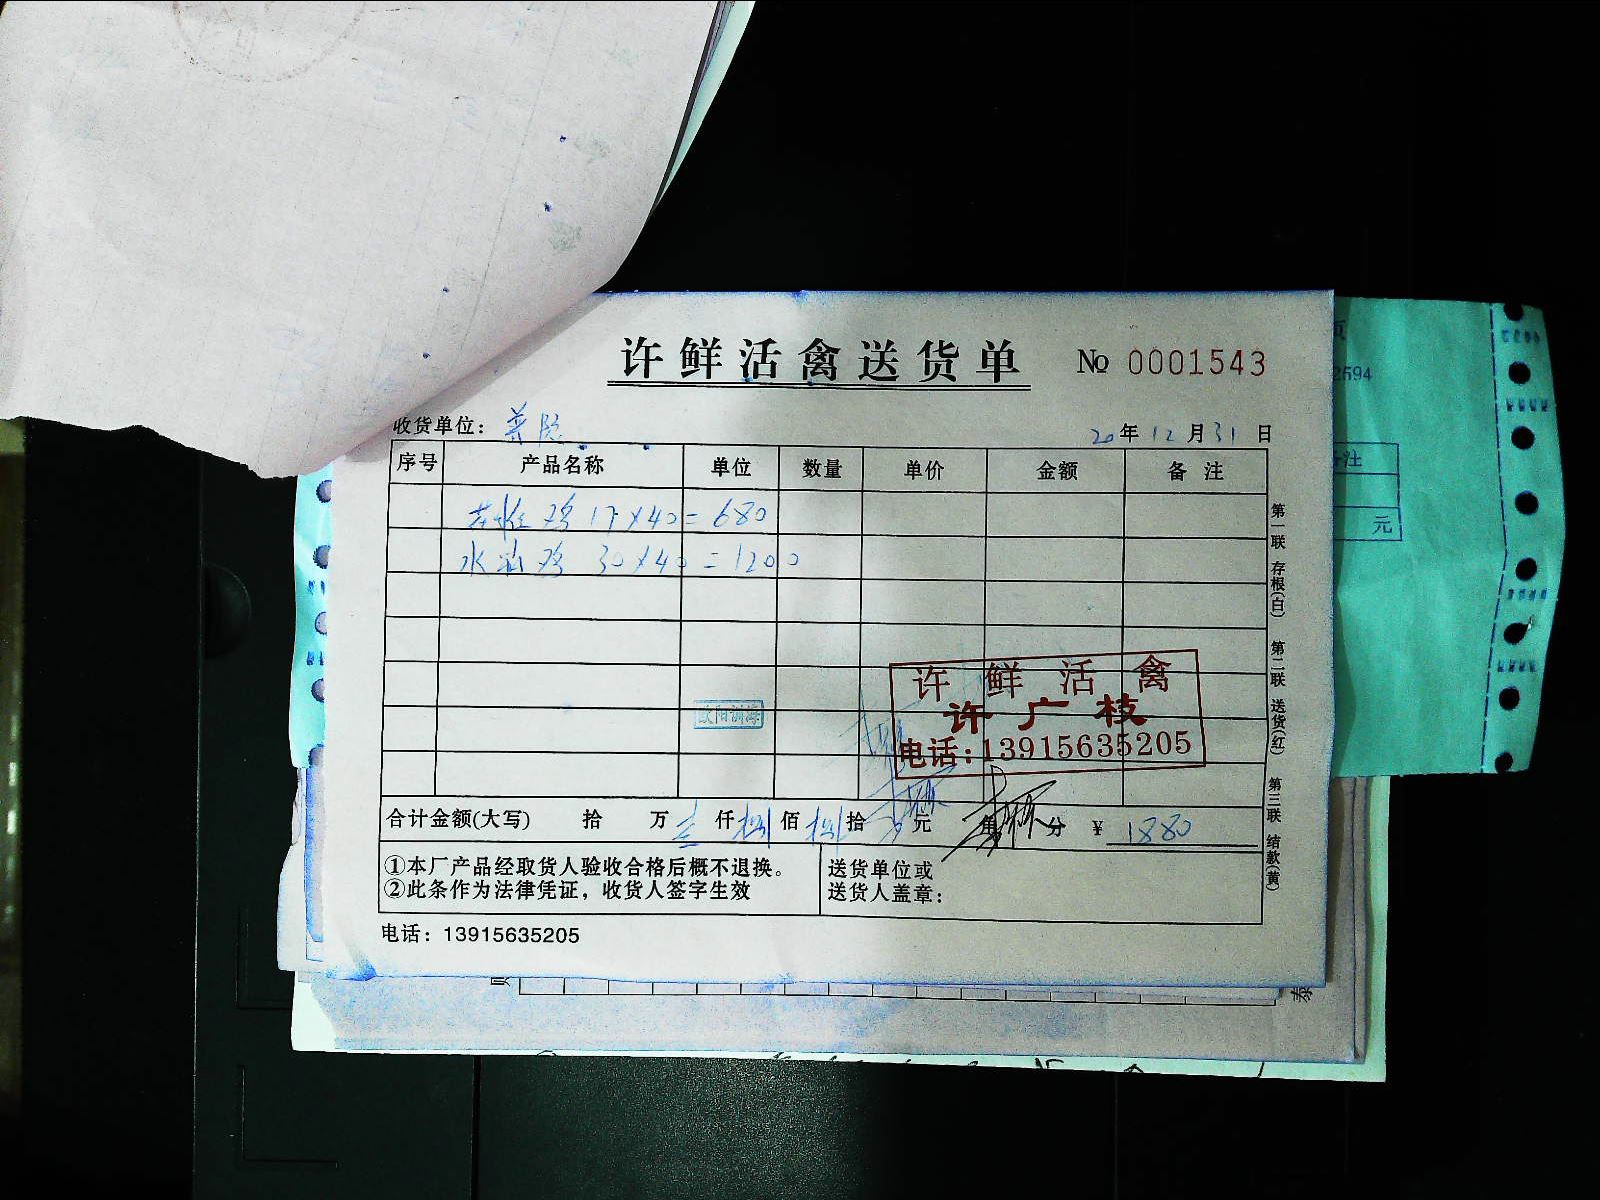 许鲜活禽送货单 № 0001543
收货单位: 20年12月31日
序号 产品名称 单位 数量 单价 金额 备注
鸡 17×40=680
水 鸡 30×40=1200
许鲜活禽
许广枝
电话:13915635205
合计金额(大写) 拾 万 壹 仟 捌 佰 捌 拾 元 角 分 ¥ 1880
①本厂产品经取货人验收合格后概不退换。
②此条作为法律凭证，收货人签字生效
送货单位或
送货人盖章:
电话: 13915635205
第一联 存根(白) 第二联 送货(红) 第三联 结款(黄)
2594
注
元